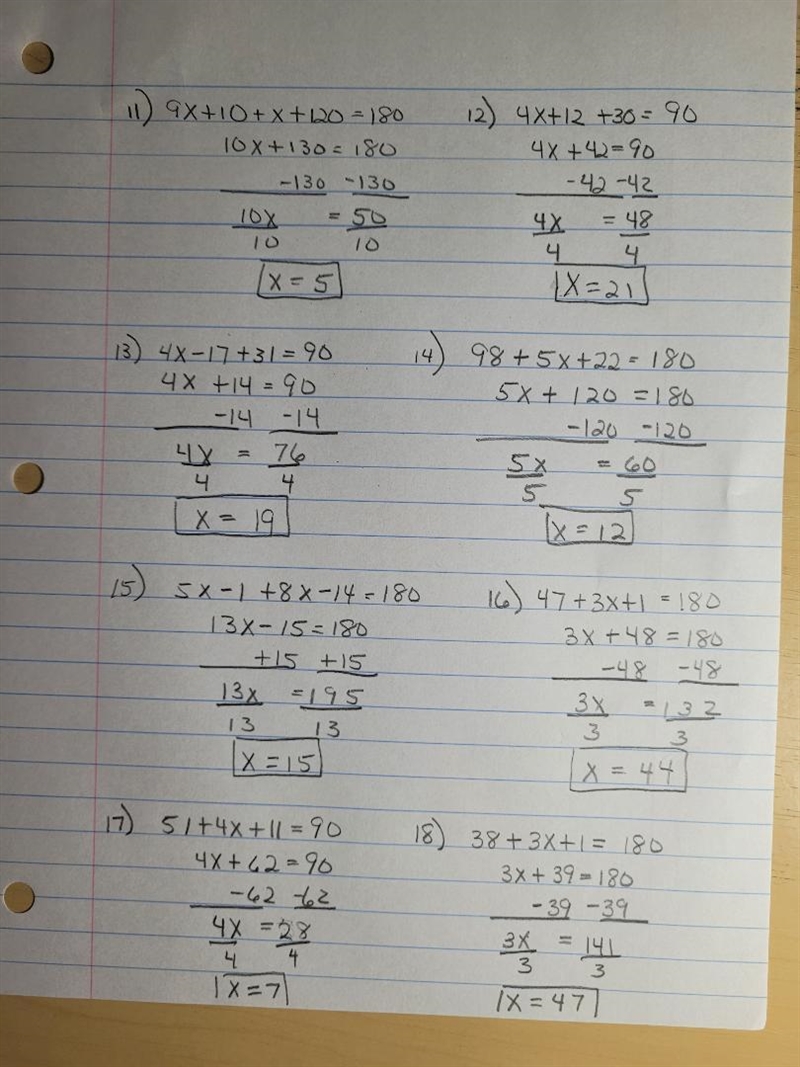 11) 9x+10+x+120=180
10x+130=180
-130 -130
10x = 50
10 10
x = 5
12) 4x+12+30=90
4x+42=90
-42 -42
4x = 48
4 4
x=21
13) 4x-17+31=90
4x+14=90
-14 -14
4x = 76
4 4
x = 19
14) 98+5x+22=180
5x+120=180
-120 -120
5x = 60
5 5
x=12
15) 5x-1+8x-14=180
13x-15=180
+15 +15
13x = 195
13 13
x=15
16) 47+3x+1=180
3x+48=180
-48 -48
3x = 132
3 3
x = 44
17) 51+4x+11=90
4x+62=90
-62 -62
4x = 28
4 4
x=7
18) 38+3x+1=180
3x+39=180
-39 -39
3x = 141
3 3
x=47